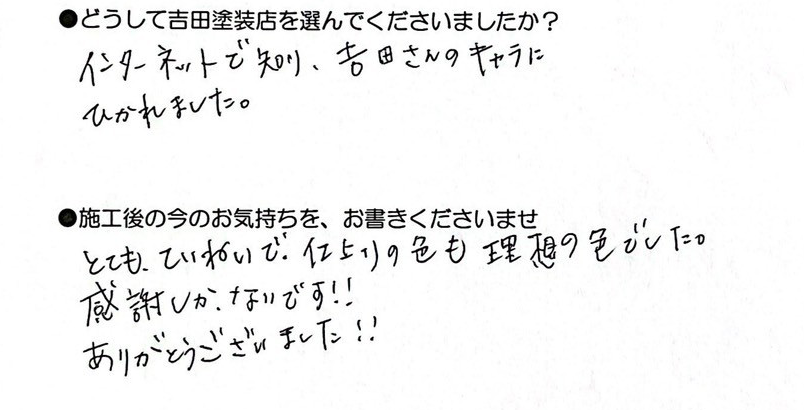 ●どうして吉田塗装店を選んでくださいましたか？
インターネットで知り、吉田さんのキャラに
ひかれました。
●施工後の今のお気持ちを、お書きくださいませ
とても、ていねいで、仕上りの色も理想の色でした。
感謝しか、ないです!!
ありがとうございました!!